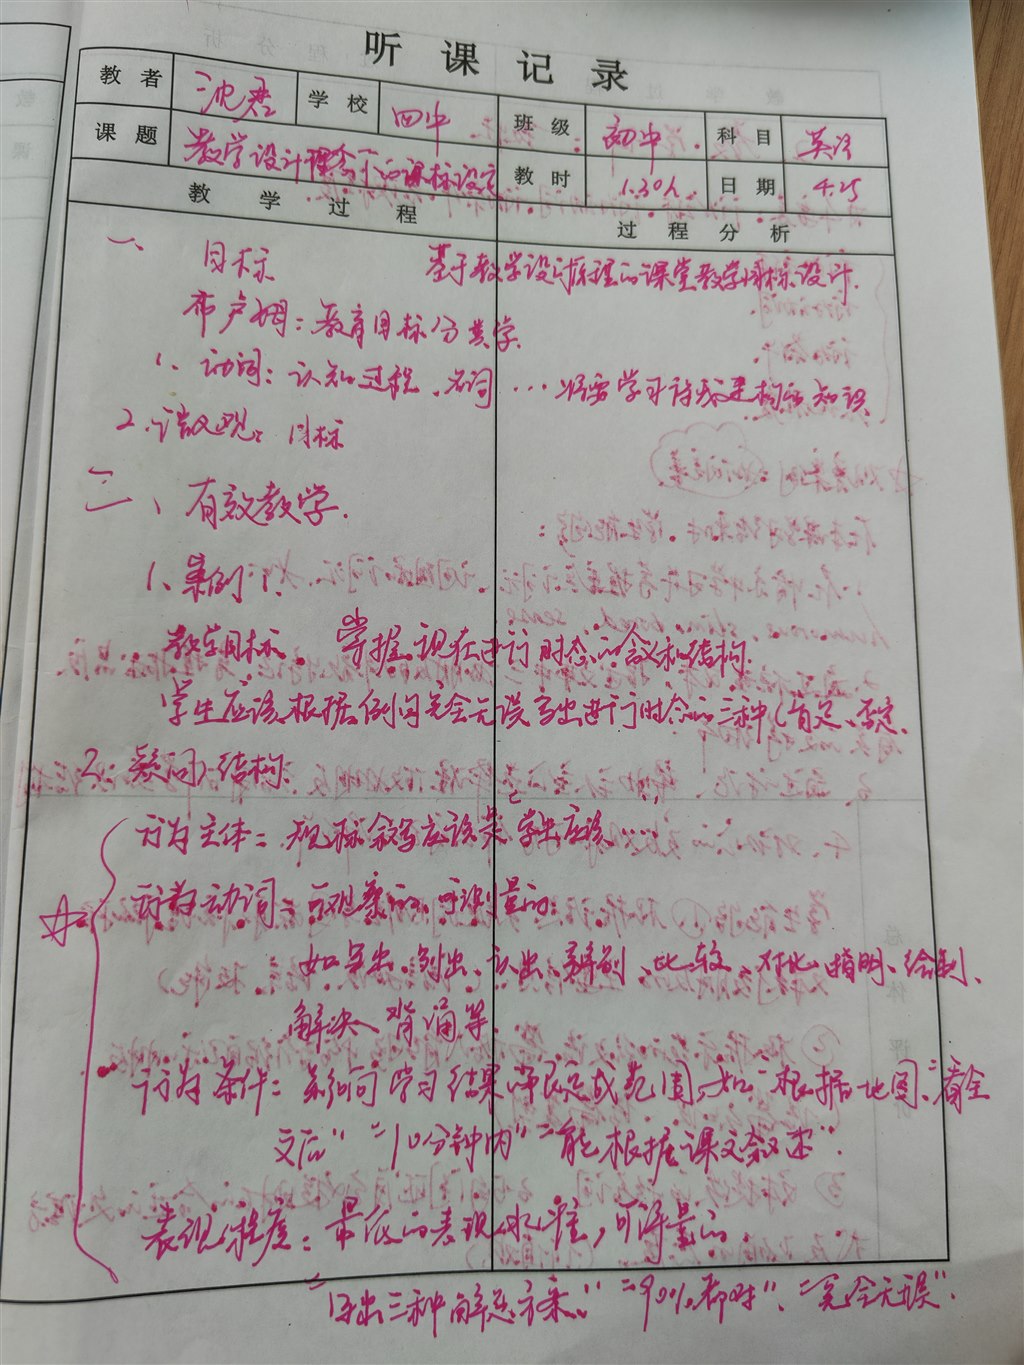 听课记录
教者 沈君 学校 四中 班级 初中 科目 英语
课题 教学设计理念下的课标设定 教时 1.30h 日期 4.25
教学过程 过程分析
一、 目标 基于教学设计原理的课堂教学目标设计.
布卢姆：教育目标分类学.
1、动词：认知过程、名词…将要学习或建构的知识
2.微观：目标
二、有效教学.
1、案例1：
教学目标. 掌握现在进行时态的含义和结构.
学生应该根据例句完全无误写出进行时态的三种(肯定、否定
2: 疑问)结构:
行为主体：规标叙写应该是"学生应该……"
行为动词：可观察的、可测量的
如写出、列出、认出、辨别、比较、对比、指明、绘制、
解决、背诵等.
行为条件：影响学习结果的限定或范围，如"根据地图、"看全
文后" "10分钟内" "能根据课文叙述".
表现程度：最低的表现水准，可测量的.
"写出三种解题方案." "90%都对"、"完全无误".